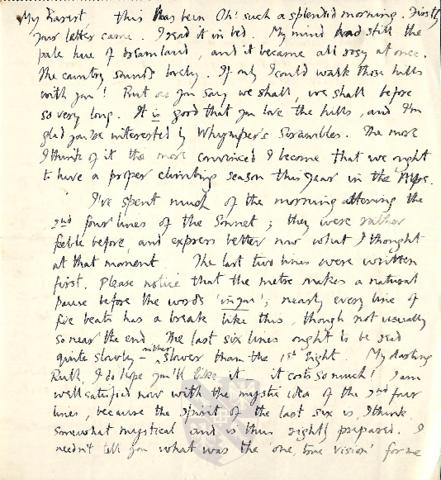 My dearest, this has been Oh! such a splendid morning. Firstly
your letter came. I read it in bed. My mind had still the
pale hue of dreamland, and it became all rosy at once.
The country sounds lovely. If only I could walk those hills
with you! But as you say we shall, we shall before
so very long. It is good that you love the hills, and I'm
glad you're interested by Whymper's Scrambles. The more
I think of it the more convinced I become that we ought
to have a proper climbing season this year in the Alps.
I've spent much of the morning altering the
2nd four lines of the Sonnet; they were rather
feeble before, and express better now what I thought
at that moment. The last two lines were written
first. Please notice that the metre makes a natural
pause before the words 'in you'; nearly every line of
five beats has a break like this, though not usually
so near the end. The last six lines ought to be read
quite slowly – rather slower than the 1st eight. My darling
Ruth, I do hope you'll like it it costs so much! I am
well satisfied now with the mystic idea of the 2nd four
lines, because the spirit of the last six is, I think,
somewhat mystical and is thus rightly prepared. I
needn't tell you what was the 'one, true vision' for me